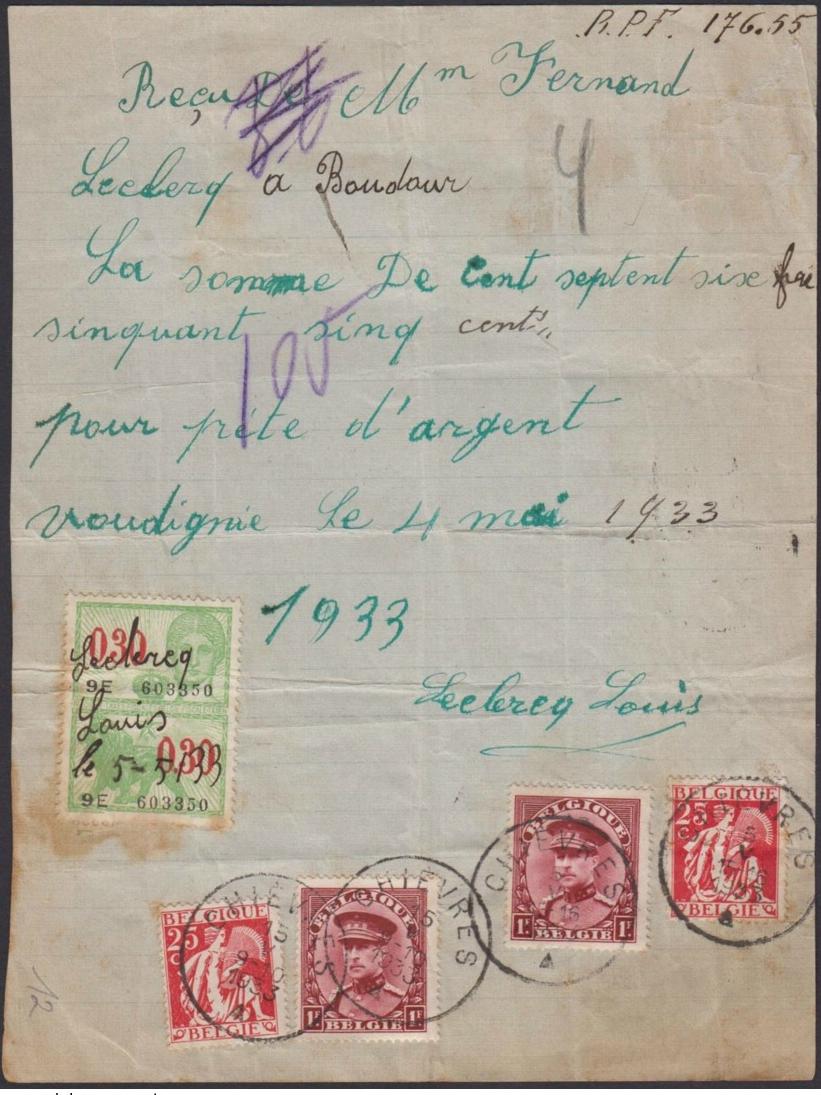 R.P.F. 176.55
Reçu De Mm Fernand
Leclercq a Boudour
4
La somme De Cent septent sixe
sinquant sinq cent
105
pour prête d'argent
voudignie Le 4 mai 1933
1933
Leclercq Louis
0.30
Leclercq
9E 603350
Louis
0.30
le 5-5-1933
9E 603350
BELGIQUE
1F 1F
BELGIË
CHIEVRES
BELGIQUE
25
BELGIË
CHIEVRES
1933
BELGIQUE
25
BELGIE
CHIEVRES
1933
BELGIQUE
1F 1F
BELGIE
CHIEVRES
1933
12